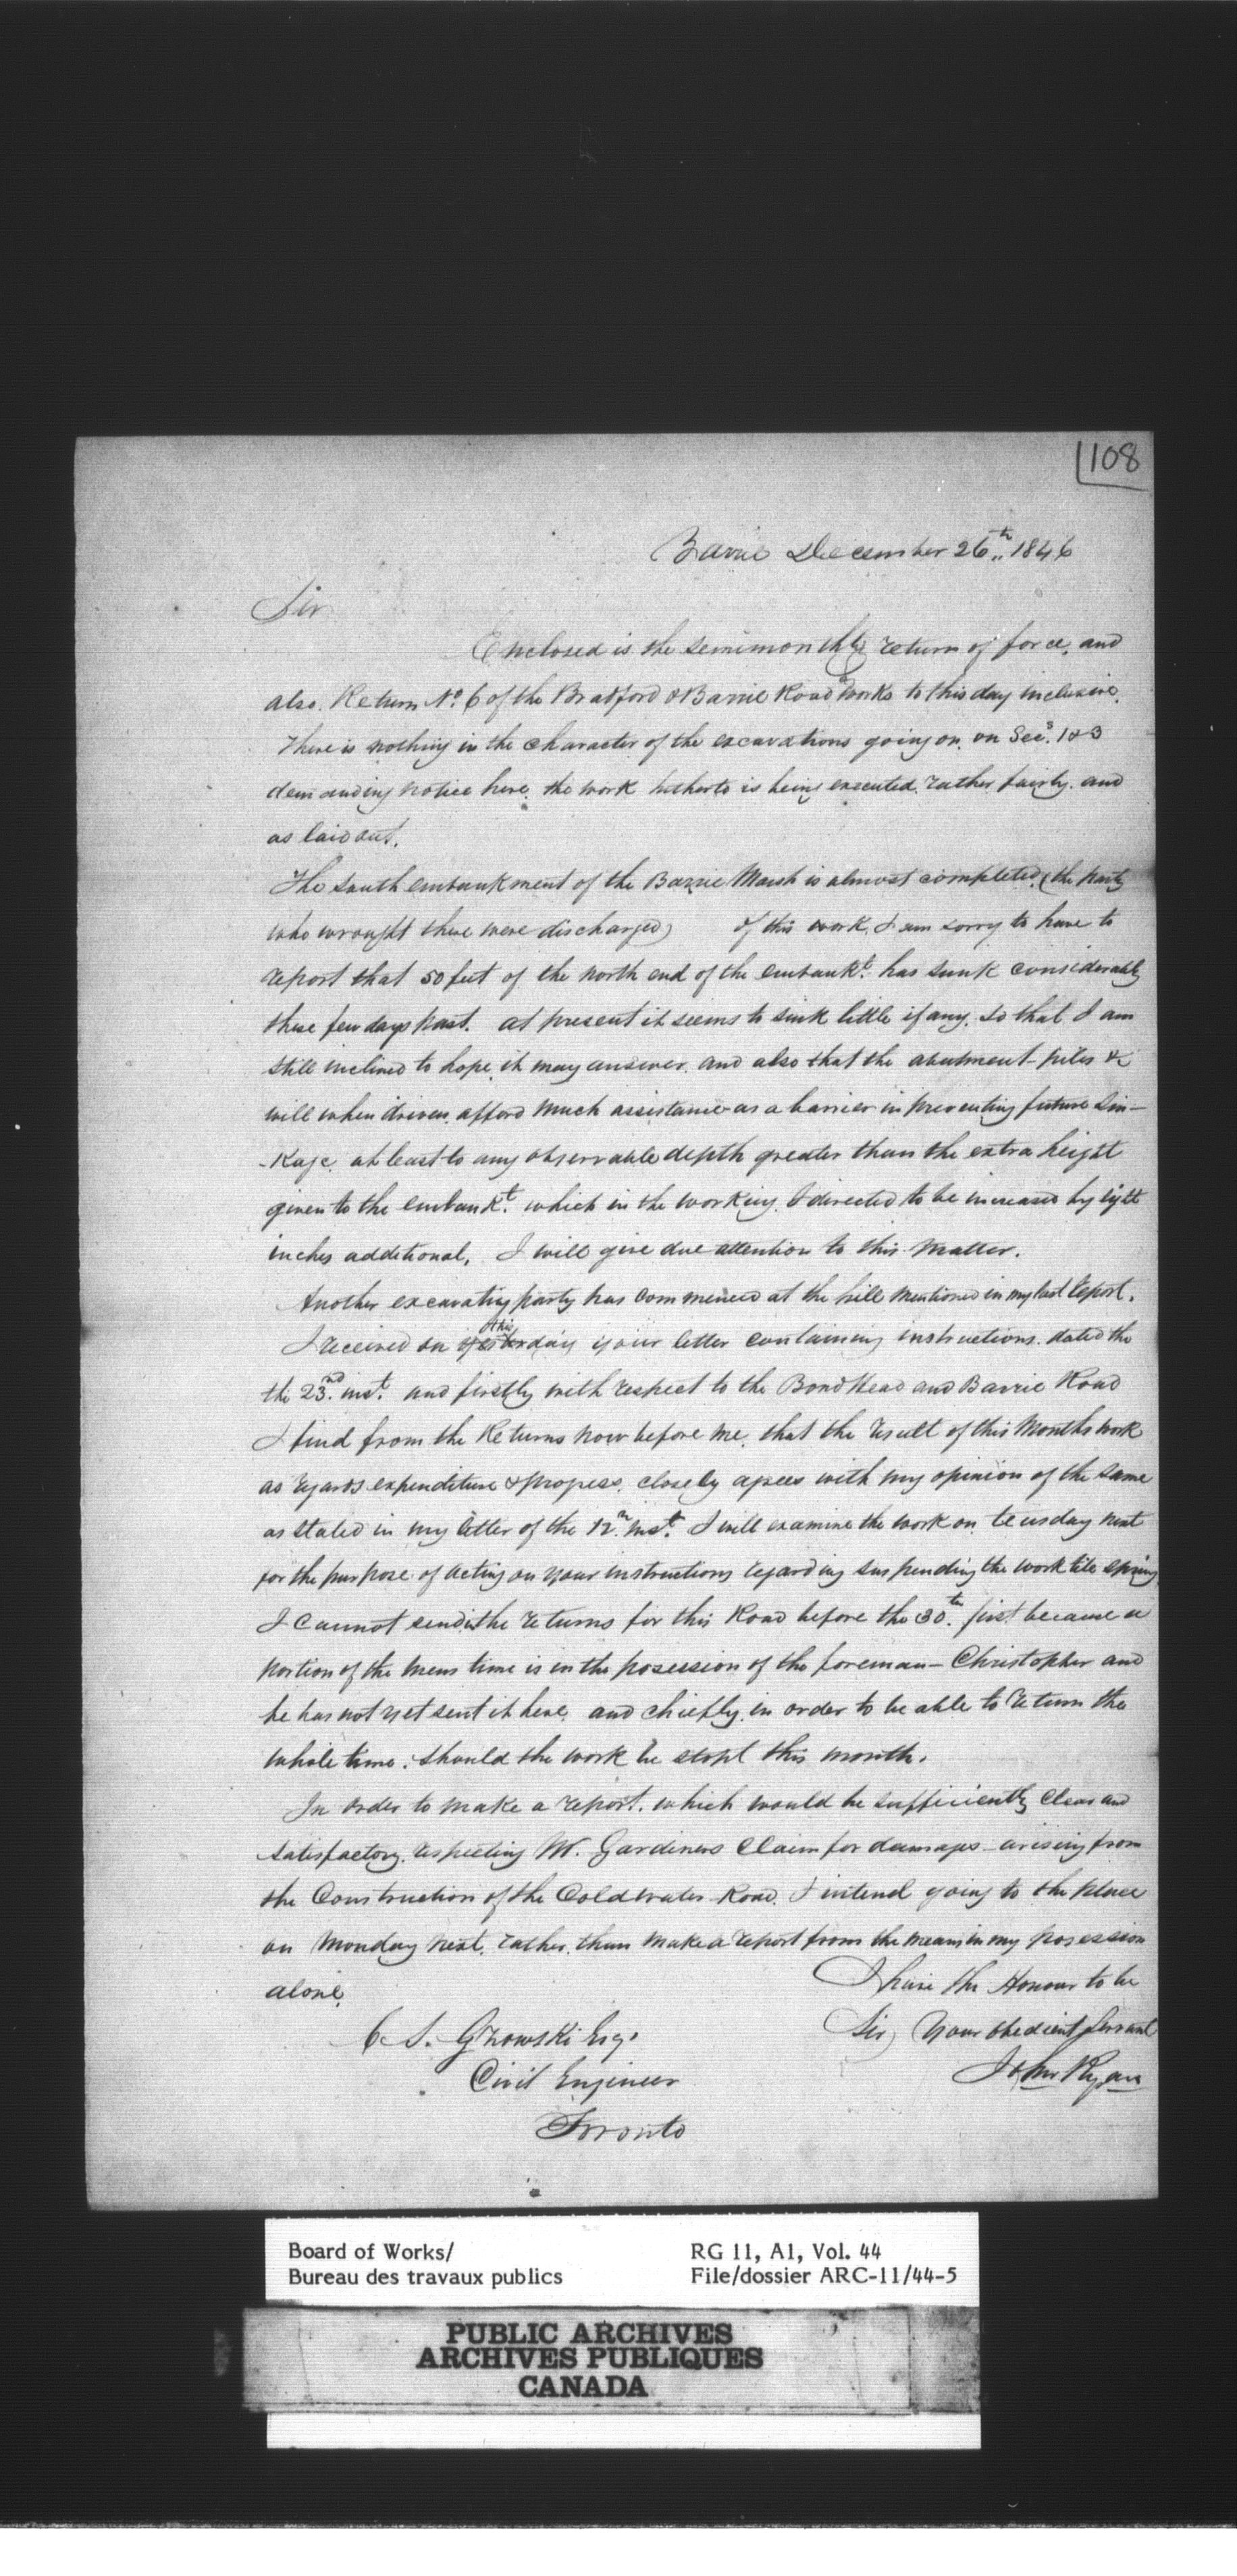 108
Barrie December 26th 1846
Sir
Enclosed is the semimonthly return of force, and
also. Return No. 6 of the Bradford & Barrie Road Works to this day inclusive.
There is nothing in the character of the excavations going on, on Secs. 1 & 3
demanding notice here. the work hitherto is being executed. rather fairly. and
as laid out.
The south embankment of the Barrie Marsh is almost completed, (the party
who wrought there were discharged) of this work. I am sorry to have to
report that 50 feet of the north end of the embankt. has sunk considerably
these few days past. at present it seems to sink little if any. so that I am
still inclined to hope it may answer. and also that the abutment-piles &c
will when driven. afford much assistance as a barrier in preventing future sin-
-kage. at least to any observable depth greater than the extra height
given to the embankt. which in the working. I directed to be increased by eight
inches additional. I will give due attention to this matter.
Another excavating party has commenced at the hill mentioned in my last report.
I received on yesterday this day your letter containing instructions. dated the
the 23nd. inst. and firstly with respect to the Bond Head and Barrie Road
I find from the Returns now before me. that the result of this Months work
as regards expenditure & progress. closely agrees with my opinion of the same
as stated in my letter of the 12th. inst. I will examine the work on teusday next
for the purpose of acting on your instructions regarding suspending the work till spring
I cannot send in the returns for this Road before the 30th. first because a
portion of the mens time is in the posession of the foreman - Christopher and
he has not yet sent it here. and chiefly. in order to be able to return the
whole time. should the work be stopt this month.
In order to make a report. which would be sufficiently clear and
satisfactory. respecting Mr. Gardiners Claim for damages - arising from
the Construction of the Coldwater Road. I intend going to the place
on Monday next. rather. than make a report from the means in my posession
alone.
I have the Honour to be
Sir, Your obedient Servant
John Ryan
C. S. Gzowski Esqr.
Civil Engineer
Toronto
Board of Works/
Bureau des travaux publics
RG 11, A1, Vol. 44
File/dossier ARC-11/44-5
PUBLIC ARCHIVES
ARCHIVES PUBLIQUES
CANADA